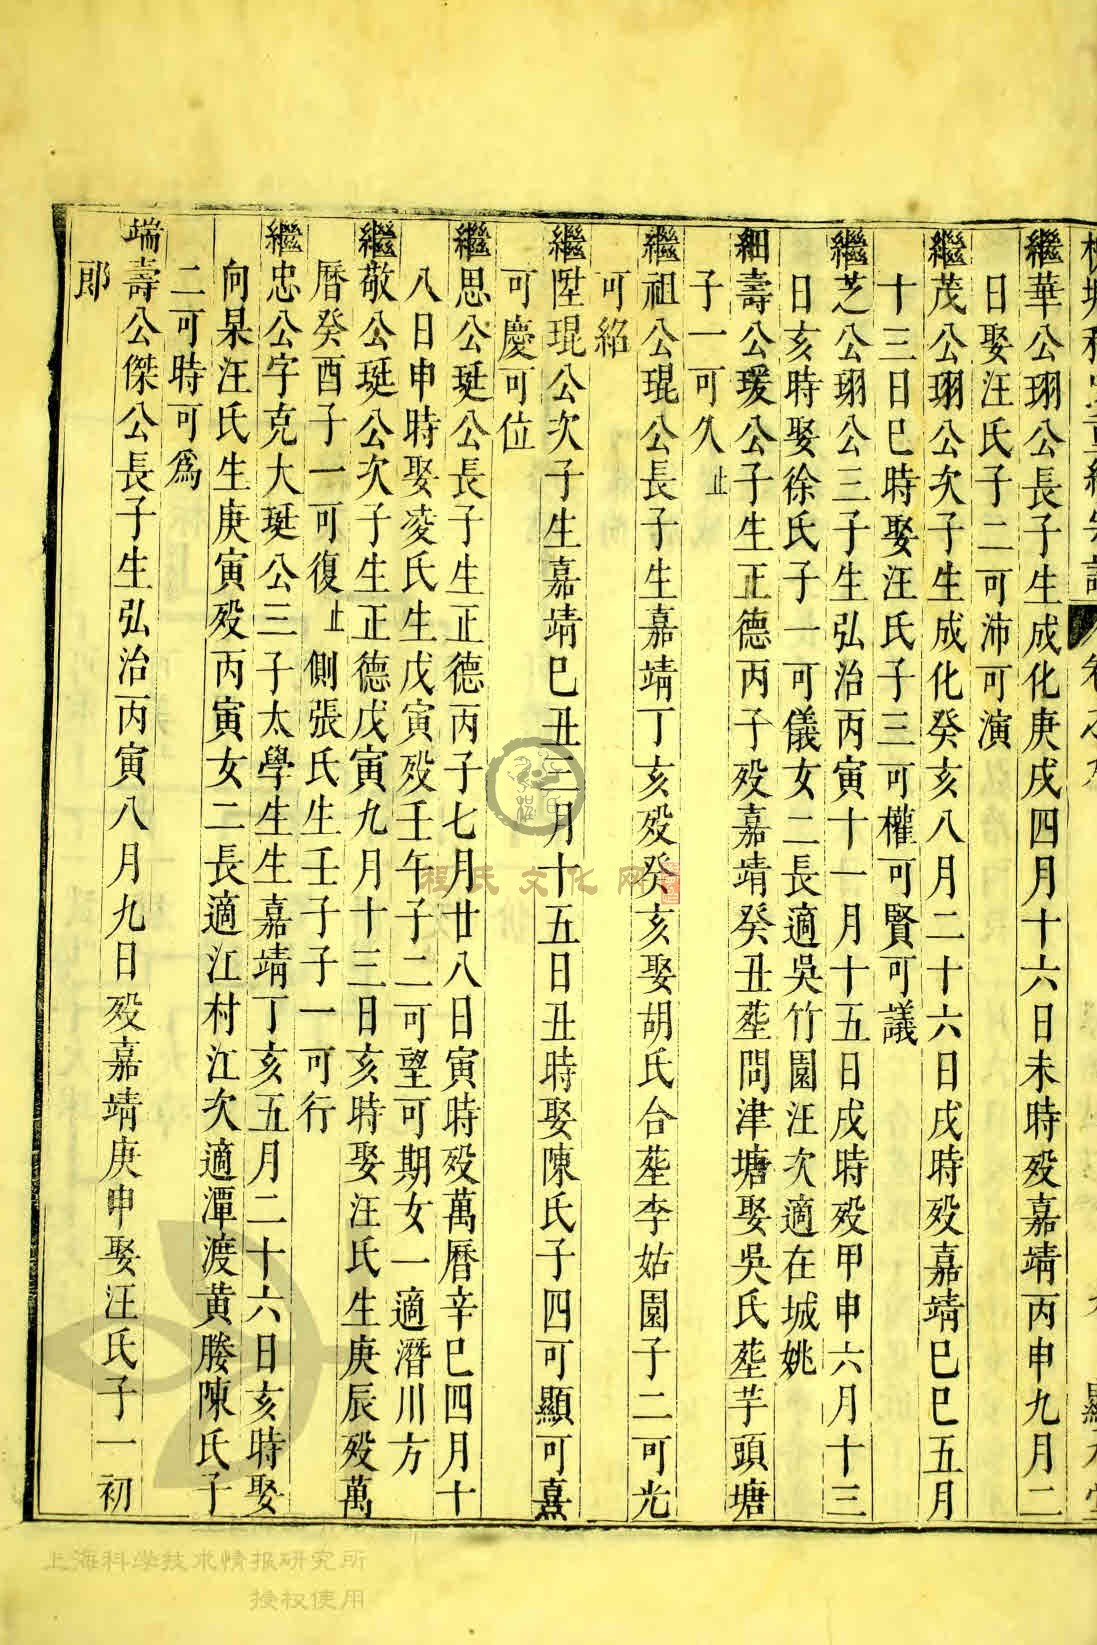 繼華公珝公長子生成化庚戌四月十六日未時殁嘉靖丙申九月二
日娶汪氏子二可沛可演
繼茂公珝公次子生成化癸亥八月二十六日戌時殁嘉靖巳巳五月
十三日巳時娶汪氏子三可權可賢可議
繼芝公珝公三子生弘治丙寅十一月十五日戌時殁甲申六月十三
日亥時娶徐氏子一可儀女二長適吳竹園汪次適在城姚
細壽公瑗公子生正德丙子殁嘉靖癸丑塟問津塘娶吳氏塟芋頭塘
子一可久止
繼祖公琨公長子生嘉靖丁亥殁癸亥娶胡氏合塟李姑園子二可光
可紹
繼陞琨公次子生嘉靖巳丑三月十五日丑時娶陳氏子四可顯可熹
可慶可位
繼思公珽公長子生正德丙子七月廿八日寅時殁萬曆辛巳四月十
八日申時娶凌氏生戊寅殁壬午子二可望可期女一適潛川方
繼敬公珽公次子生正德戊寅九月十三日亥時娶汪氏生庚辰殁萬
曆癸酉子一可復止側張氏生壬子子一可行
繼忠公字克大珽公三子太學生生嘉靖丁亥五月二十六日亥時娶
向杲汪氏生庚寅殁丙寅女二長適江村江次適潭渡黃媵陳氏子
二可時可爲
端壽公傑公長子生弘治丙寅八月九日殁嘉靖庚申娶汪氏子一初
郎
程氏文化网
上海科学技术情报研究所
授权使用